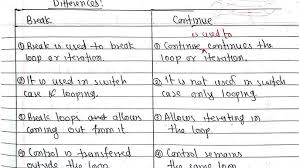 Differences:
Break
Continue
① Break is used to break
loop or iteration.
is used to
① Continue continues the
loop or iteration.
② It is used in switch
case & looping.
② It is not used in switch
case only looping.
③ Break loops and allows
coming out from it
③ Allows iterating in
the loop.
④ Control is transferred
outside the loop
④ Control remains
the same loop